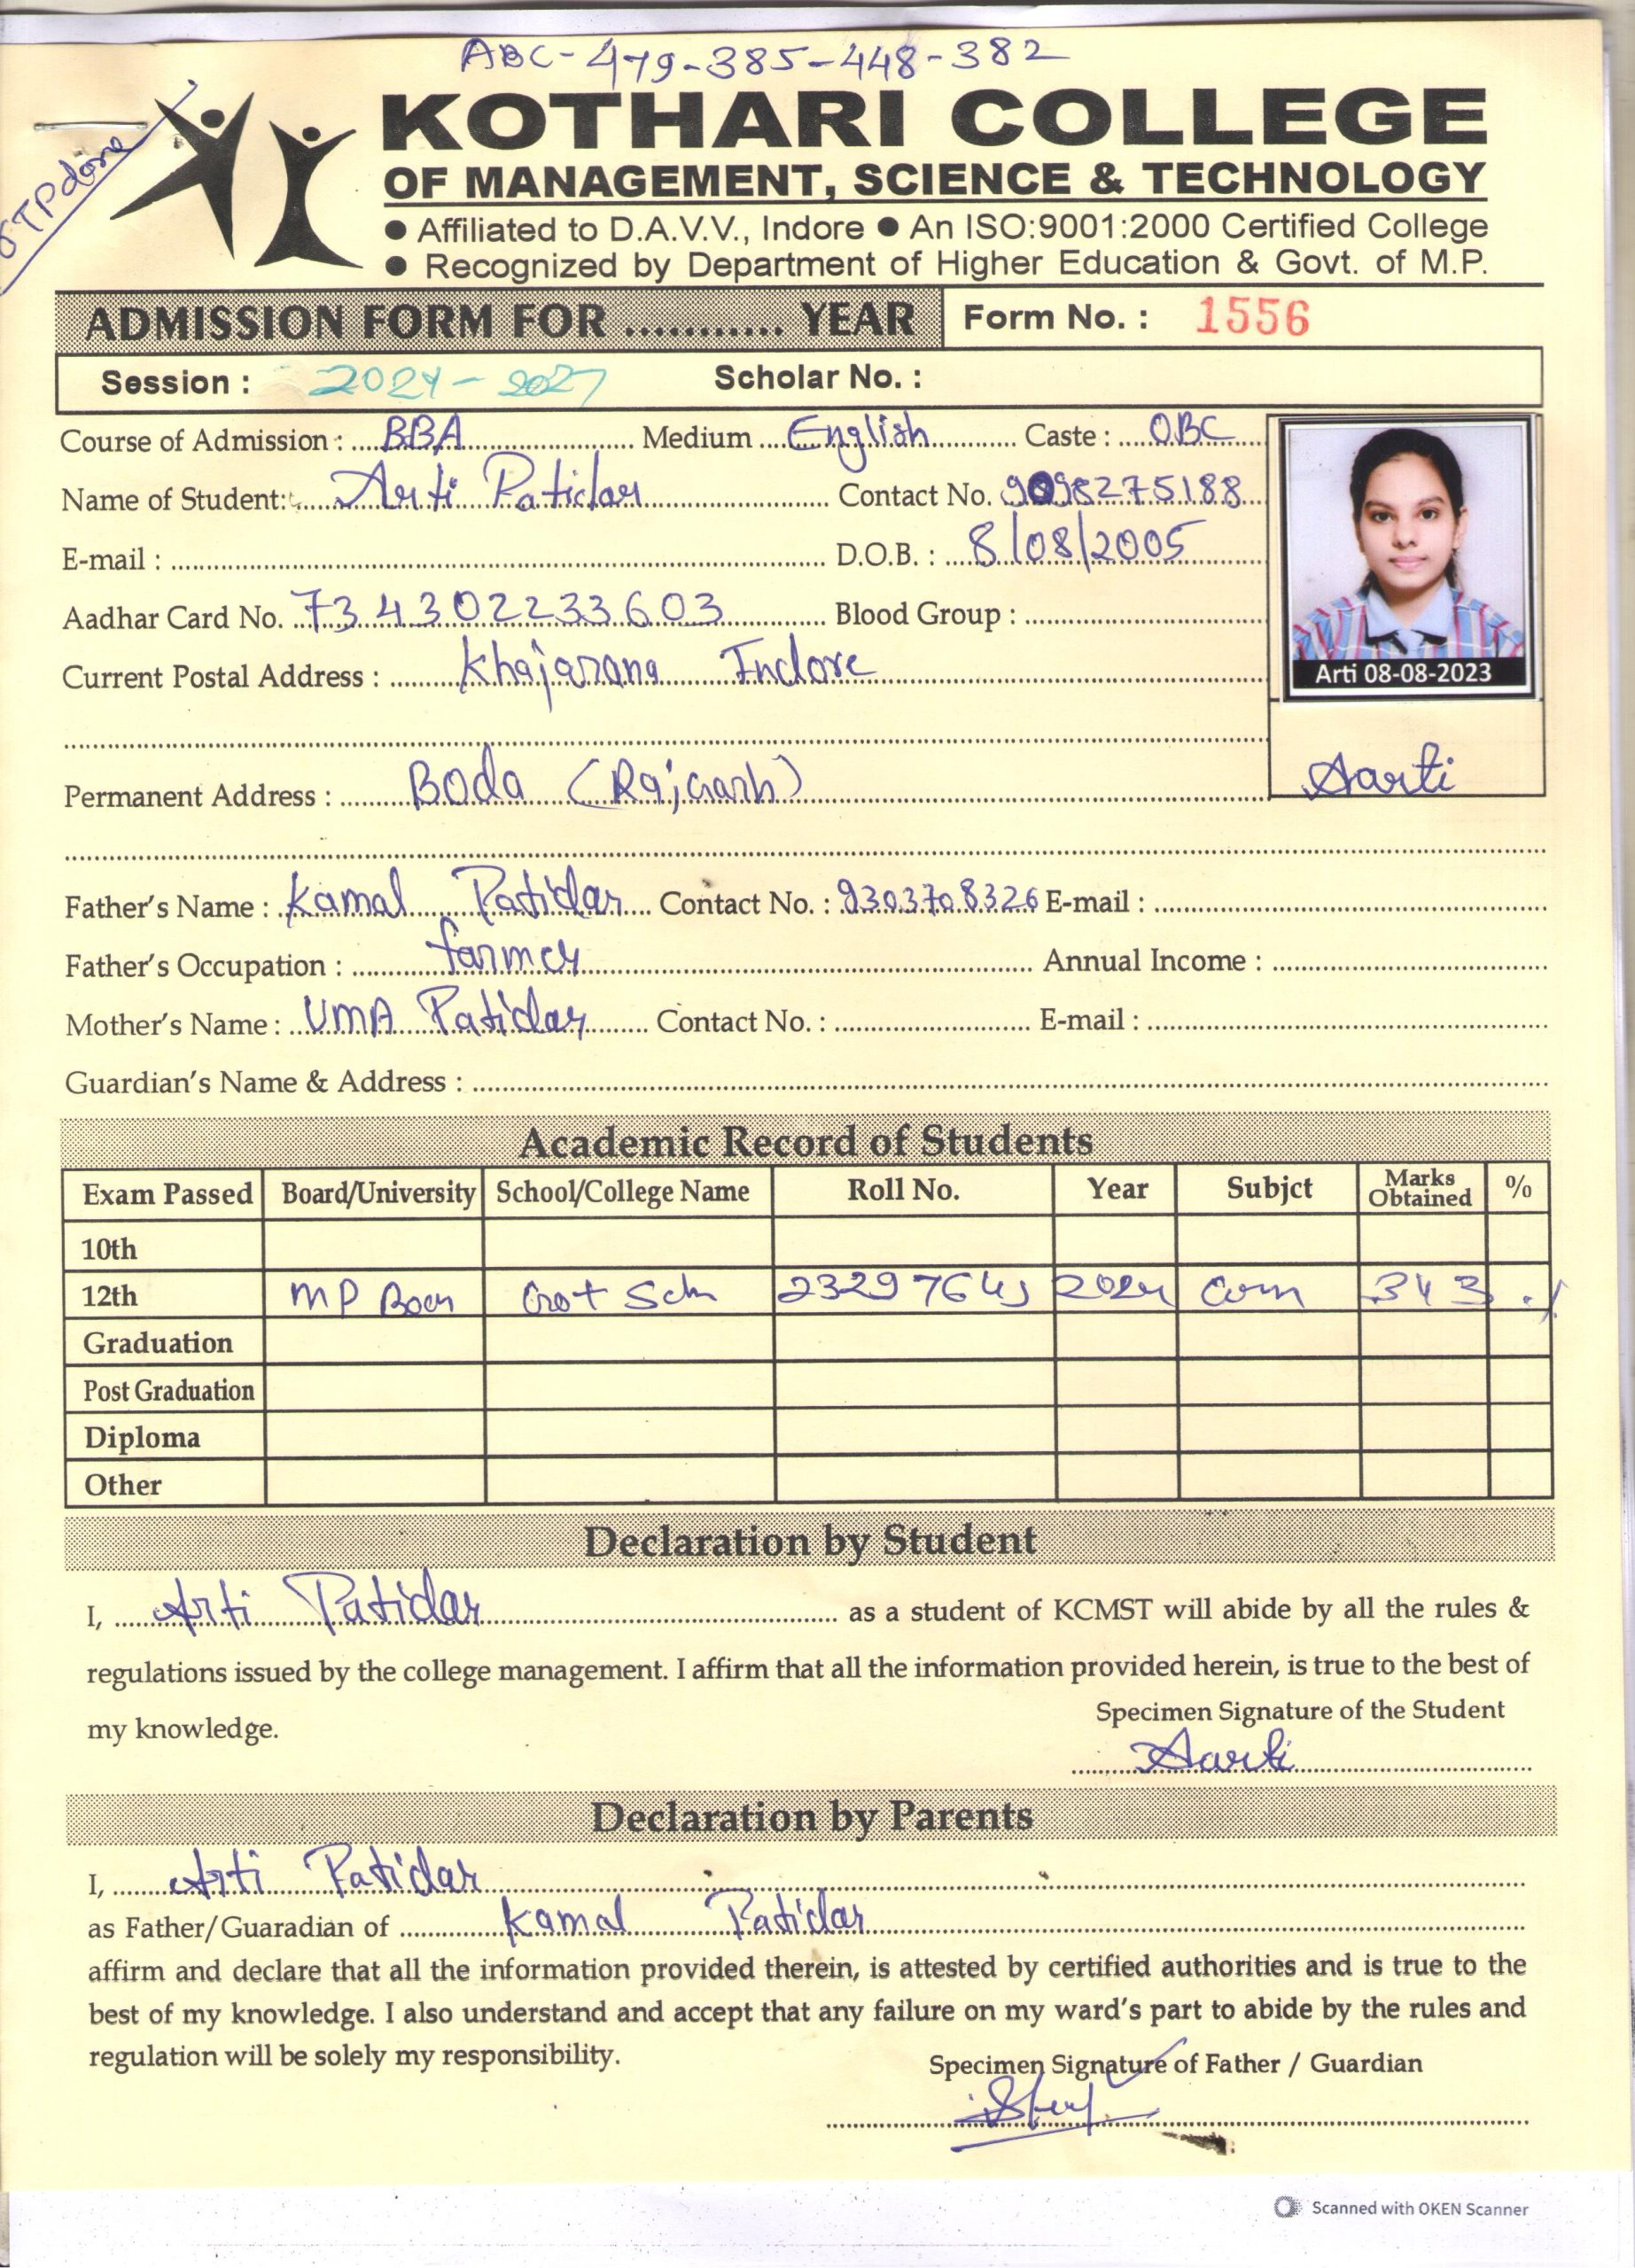 ABC-479-385-448-382
OTP done
KOTHARI COLLEGE
OF MANAGEMENT, SCIENCE & TECHNOLOGY
● Affiliated to D.A.V.V., Indore ● An ISO:9001:2000 Certified College
● Recognized by Department of Higher Education & Govt. of M.P.
ADMISSION FORM FOR ........... YEAR Form No. : 1556
Session : 2024-2027 Scholar No. :
Course of Admission : BBA Medium English Caste : OBC
Name of Student: Arti Patidar Contact No. 9098275188
E-mail : D.O.B. : 8/08/2005
Aadhar Card No. 734302233603 Blood Group :
Arti 08-08-2023
Current Postal Address : Khajarana Indore
Aarti
Permanent Address : Boda (Rajgarh)
Father's Name : Kamal Patidar Contact No. : 9303708326 E-mail :
Father's Occupation : farmer Annual Income :
Mother's Name : UMA Patidar Contact No. : E-mail :
Guardian's Name & Address :
Academic Record of Students
Exam Passed Board/University School/College Name Roll No. Year Subjct Marks Obtained %
10th
12th MP 2024 Com 343 .%
Graduation
Post Graduation
Diploma
Other
Declaration by Student
I, Arti Patidar as a student of KCMST will abide by all the rules &
regulations issued by the college management. I affirm that all the information provided herein, is true to the best of
my knowledge.
Specimen Signature of the Student
Aarti
Declaration by Parents
I, Arti Patidar
as Father/Guaradian of Kamal Patidar
affirm and declare that all the information provided therein, is attested by certified authorities and is true to the
best of my knowledge. I also understand and accept that any failure on my ward's part to abide by the rules and
regulation will be solely my responsibility.
Specimen Signature of Father / Guardian
Scanned with OKEN Scanner